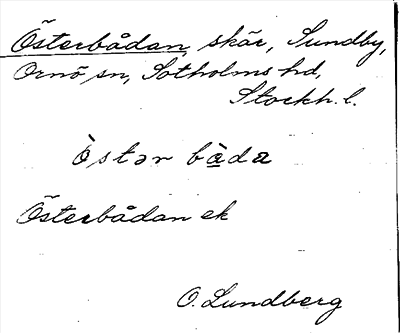 Österbådan, skär, Sundby,
Ornö sn, Sotholms hd,
Stockh. l.
ò̀stər bå̀da
Österbådan ek
O. Lundberg